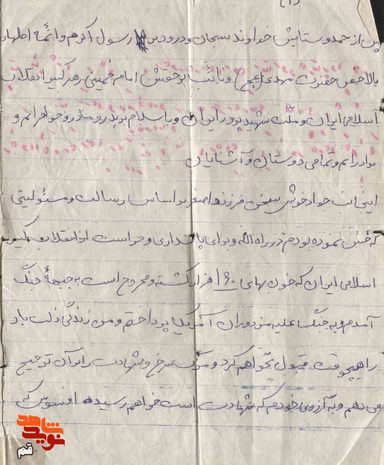 پس از حمد و ستایش خداوند سبحان و درود بر رسول اکرم و ائمه اطهار
بالاخص حضرت مهدی (عج) و نائب برحقش امام خمینی رهبر کبیر انقلاب
اسلامی ایران و ملت شهید پرور ایران و با سلام بر پدر و مادر و خواهرانم و
برادرانم و تمامی دوستان و آشنایان
اینجانب جواد خوش سخن فرزند اصغر بر اساس رسالت و مسئولیتی
که حس نموده بودم در راه الله و برای پاسداری و حراست از انقلاب
اسلامی ایران که خون بهای هزار کشته و مجروح است به جبهه جنگ
آمدم و به جنگ علیه مزدوران آمریکا پرداختم و من زندگی ذلت بار
را هیچوقت قبول نخواهم کرد و مرگ سرخ و شهادت را بر آن ترجیح
می دهم و به آرزوی خودم که شهادت است خواهم رسید
نوید شاهد
قم